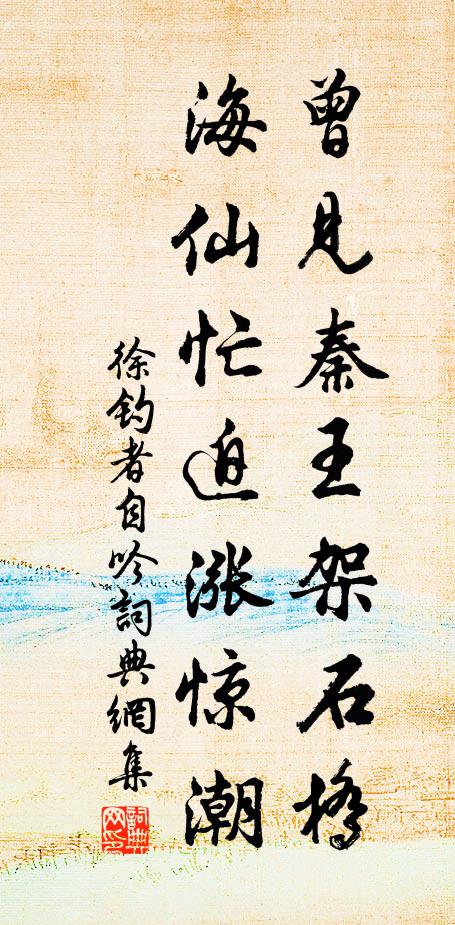 曾見秦王架石橋
海仙忙迫涨惊潮
徐钓者自吟詞典網集
詞典网印